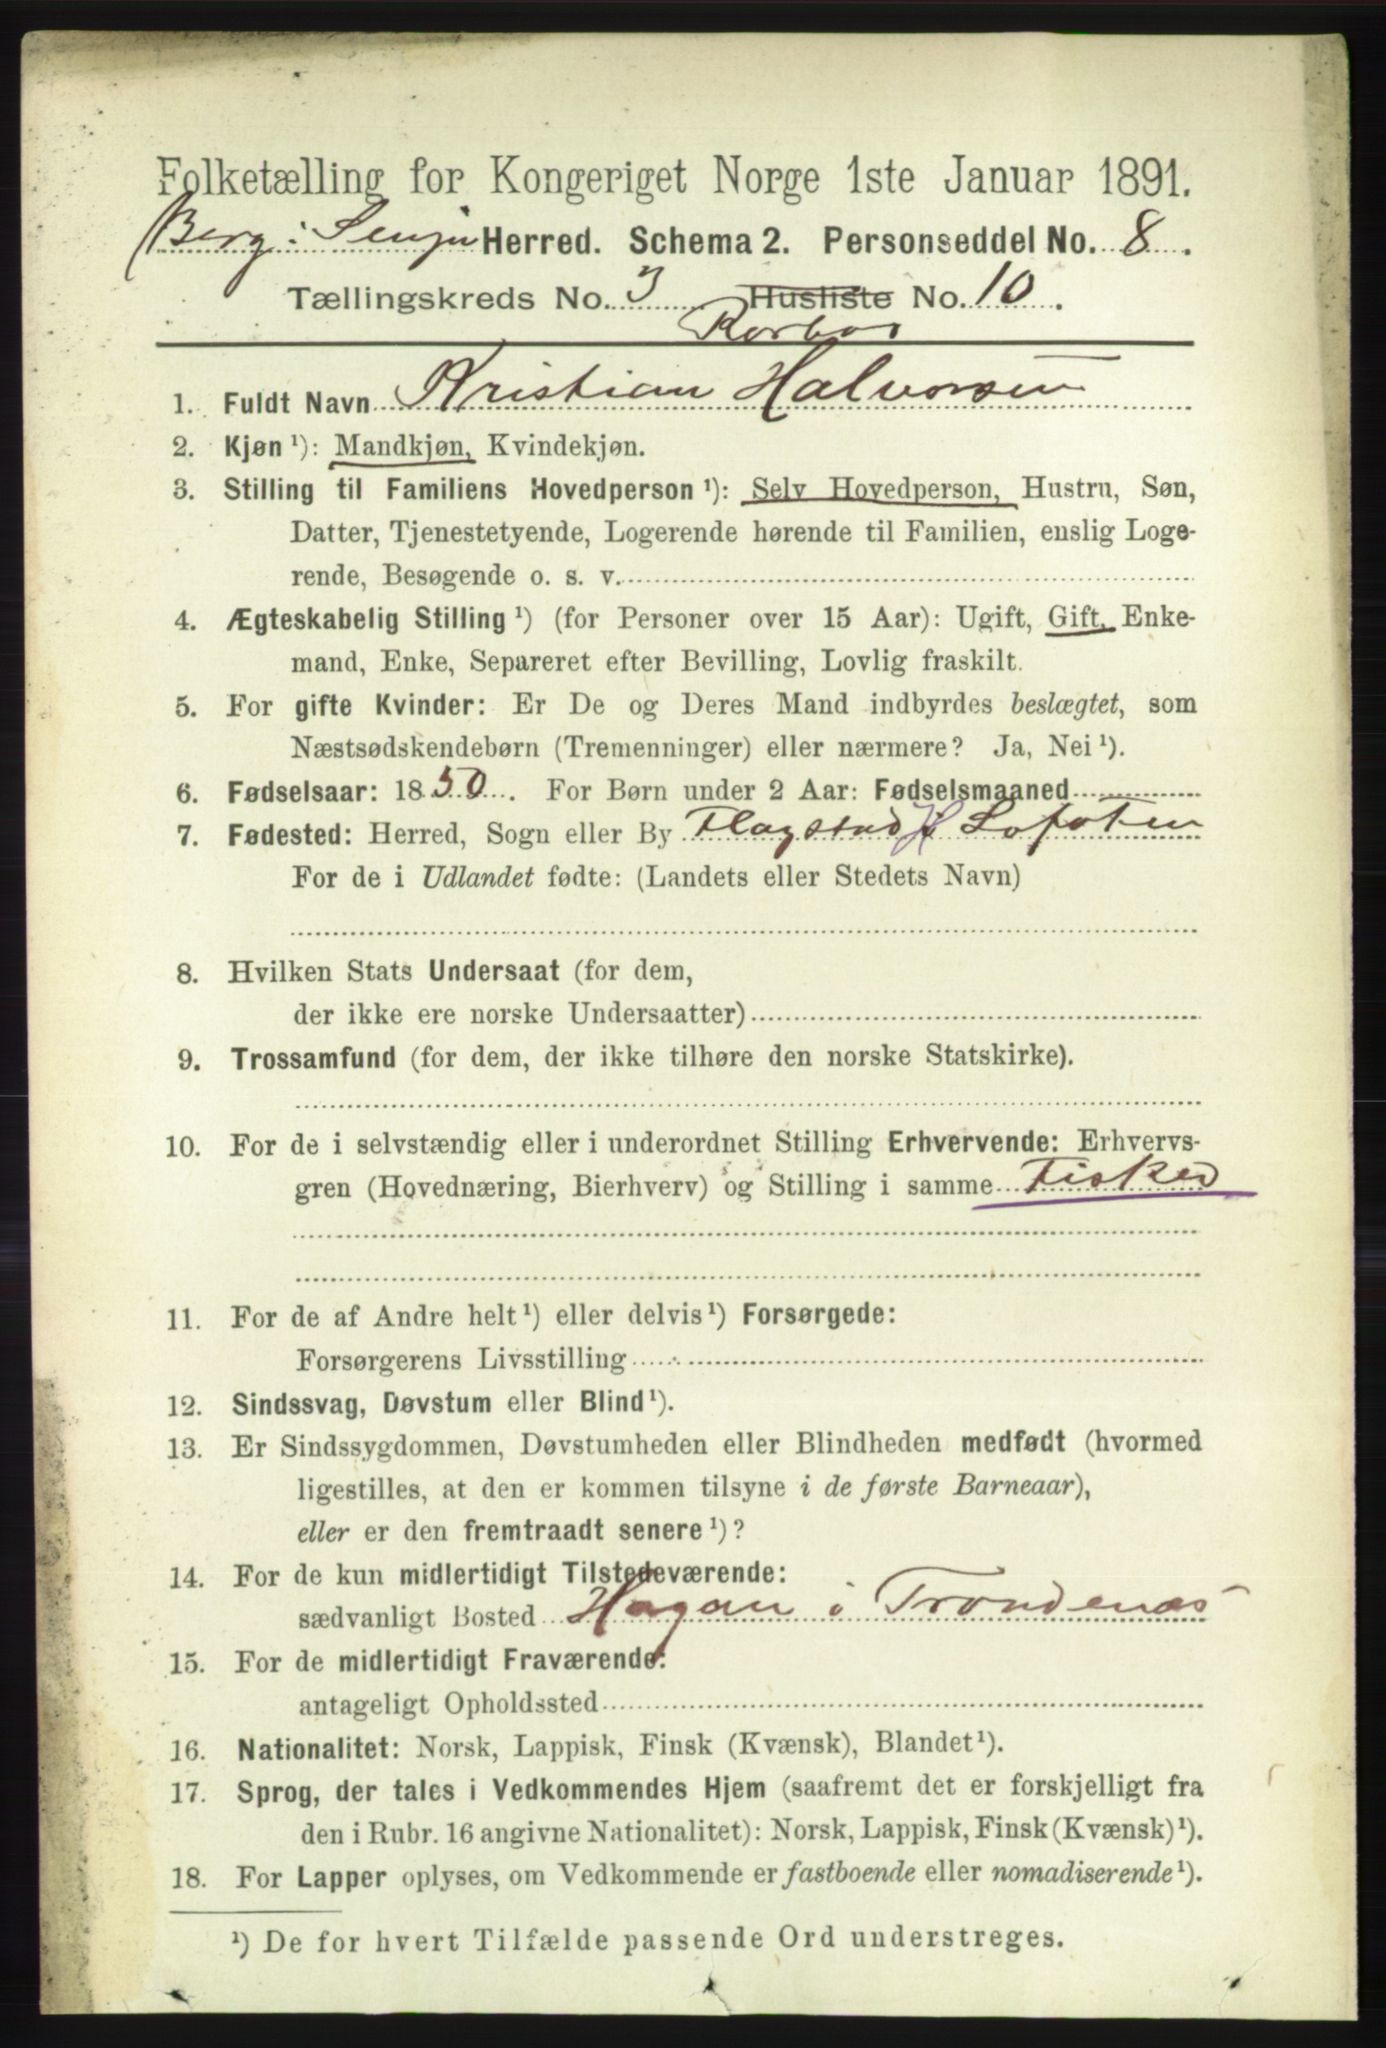 Folketælling for Kongeriget Norge 1ste Januar 1891.
Berg i Senjen Herred. Schema 2. Personseddel No. 8.
Tællingskreds No. 3 Husliste No. 10.
Rorbod
1. Fuldt Navn Kristian Halvorsen
2. Kjøn ¹): Mandkjøn, Kvindekjøn.
3. Stilling til Familiens Hovedperson ¹): Selv Hovedperson, Hustru, Søn,
Datter, Tjenestetyende, Logerende hørende til Familien, enslig Loge-
rende, Besøgende o. s. v.
4. Ægteskabelig Stilling ¹) (for Personer over 15 Aar): Ugift, Gift, Enke-
mand, Enke, Separeret efter Bevilling, Lovlig fraskilt.
5. For gifte Kvinder: Er De og Deres Mand indbyrdes beslægtet, som
Næstsødskendebørn (Tremenninger) eller nærmere? Ja, Nei ¹).
6. Fødselsaar: 1850. For Børn under 2 Aar: Fødselsmaaned
7. Fødested: Herred, Sogn eller By Flagstad H i Lofoten
For de i Udlandet fødte: (Landets eller Stedets Navn)
8. Hvilken Stats Undersaat (for dem,
der ikke ere norske Undersaatter)
9. Trossamfund (for dem, der ikke tilhøre den norske Statskirke).
10. For de i selvstændig eller i underordnet Stilling Erhvervende: Erhvervs-
gren (Hovednæring, Bierhverv) og Stilling i samme Fisker
11. For de af Andre helt ¹) eller delvis ¹) Forsørgede:
Forsørgerens Livsstilling
12. Sindssvag, Døvstum eller Blind ¹).
13. Er Sindssygdommen, Døvstumheden eller Blindheden medfødt (hvormed
ligestilles, at den er kommen tilsyne i de første Barneaar),
eller er den fremtraadt senere ¹)?
14. For de kun midlertidigt Tilstedeværende:
sædvanligt Bosted Hagan i Trondenæs
15. For de midlertidigt Fraværende:
antageligt Opholdssted
16. Nationalitet: Norsk, Lappisk, Finsk (Kvænsk), Blandet ¹).
17. Sprog, der tales i Vedkommendes Hjem (saafremt det er forskjelligt fra
den i Rubr. 16 angivne Nationalitet): Norsk, Lappisk, Finsk (Kvænsk) ¹).
18. For Lapper oplyses, om Vedkommende er fastboende eller nomadiserende ¹).
¹) De for hvert Tilfælde passende Ord understreges.